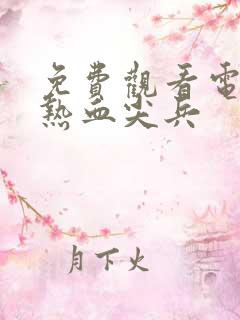 免費觀看電
熱血尖兵
月下火